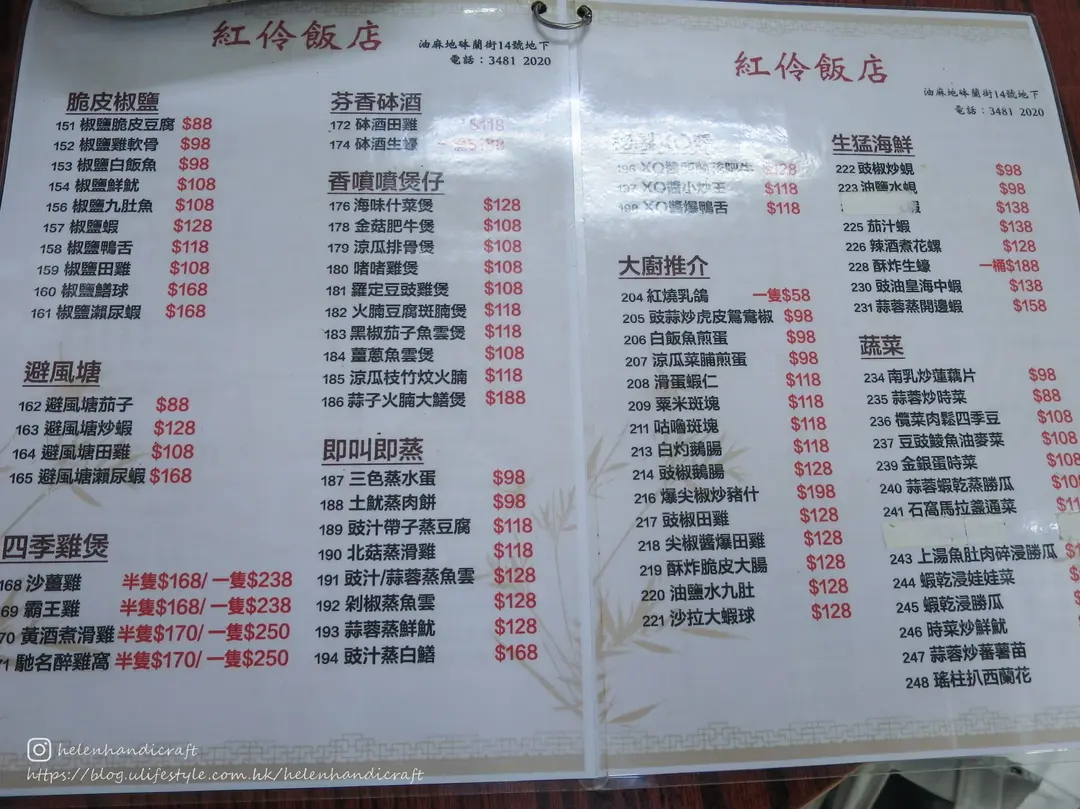 紅伶飯店
油麻地砵蘭街14號地下
電話：3481 2020
脆皮椒鹽
151 椒鹽脆皮豆腐 $88
152 椒鹽雞軟骨 $98
153 椒鹽白飯魚 $98
154 椒鹽鮮魷 $108
156 椒鹽九肚魚 $108
157 椒鹽蝦 $128
158 椒鹽鴨舌 $118
159 椒鹽田雞 $108
160 椒鹽鱔球 $168
161 椒鹽瀨尿蝦 $168
避風塘
162 避風塘茄子 $88
163 避風塘炒蝦 $128
164 避風塘田雞 $108
165 避風塘瀨尿蝦 $168
四季雞煲
168 沙薑雞 半隻$168/ 一隻$238
69 霸王雞 半隻$168/ 一隻$238
70 黃酒煮滑雞 半隻$170/ 一隻$250
71 馳名醉雞窩 半隻$170/ 一隻$250
芬香砵酒
172 砵酒田雞 $118
174 砵酒生蠔
香噴噴煲仔
176 海味什菜煲 $128
178 金菇肥牛煲 $108
179 涼瓜排骨煲 $108
180 啫啫雞煲 $108
181 羅定豆豉雞煲 $108
182 火腩豆腐斑腩煲 $118
183 黑椒茄子魚雲煲 $118
184 薑蔥魚雲煲 $108
185 涼瓜枝竹炆火腩 $118
186 蒜子火腩大鱔煲 $188
即叫即蒸
187 三色蒸水蛋 $98
188 土魷蒸肉餅 $98
189 豉汁帶子蒸豆腐 $118
190 北菇蒸滑雞 $118
191 豉汁/蒜蓉蒸魚雲 $128
192 剁椒蒸魚雲 $128
193 蒜蓉蒸鮮魷 $128
194 豉汁蒸白鱔 $168
紅伶飯店
油麻地砵蘭街14號地下
電話：3481 2020
XO醬
196 XO醬 $128
197 XO醬小炒王 $118
198 XO醬爆鴨舌 $118
大廚推介
204 紅燒乳鴿 一隻$58
205 豉蒜炒虎皮鴛鴦椒 $98
206 白飯魚煎蛋 $98
207 涼瓜菜脯煎蛋 $98
208 滑蛋蝦仁 $118
209 粟米斑塊 $118
211 咕嚕斑塊 $118
213 白灼鵝腸 $118
214 豉椒鵝腸 $128
216 爆尖椒炒豬什 $198
217 豉椒田雞 $128
218 尖椒醬爆田雞 $128
219 酥炸脆皮大腸 $128
220 油鹽水九肚 $128
221 沙拉大蝦球 $128
生猛海鮮
222 豉椒炒蜆 $98
223 油鹽水蜆 $98
蝦 $138
225 茄汁蝦 $138
226 辣酒煮花螺 $128
228 酥炸生蠔 一桶$188
230 豉油皇海中蝦 $138
231 蒜蓉蒸開邊蝦 $158
蔬菜
234 南乳炒蓮藕片 $98
235 蒜蓉炒時菜 $88
236 欖菜肉鬆四季豆 $108
237 豆豉鯪魚油麥菜 $108
239 金銀蛋時菜 $108
240 蒜蓉蝦乾蒸勝瓜
241 石窩馬拉盞通菜
243 上湯魚肚肉碎浸勝瓜
244 蝦乾浸娃娃菜
245 蝦乾浸勝瓜
246 時菜炒鮮魷
247 蒜蓉炒蕃薯苗
248 瑤柱扒西蘭花
helenhandicraft
https://blog.ulifestyle.com.hk/helenhandicraft